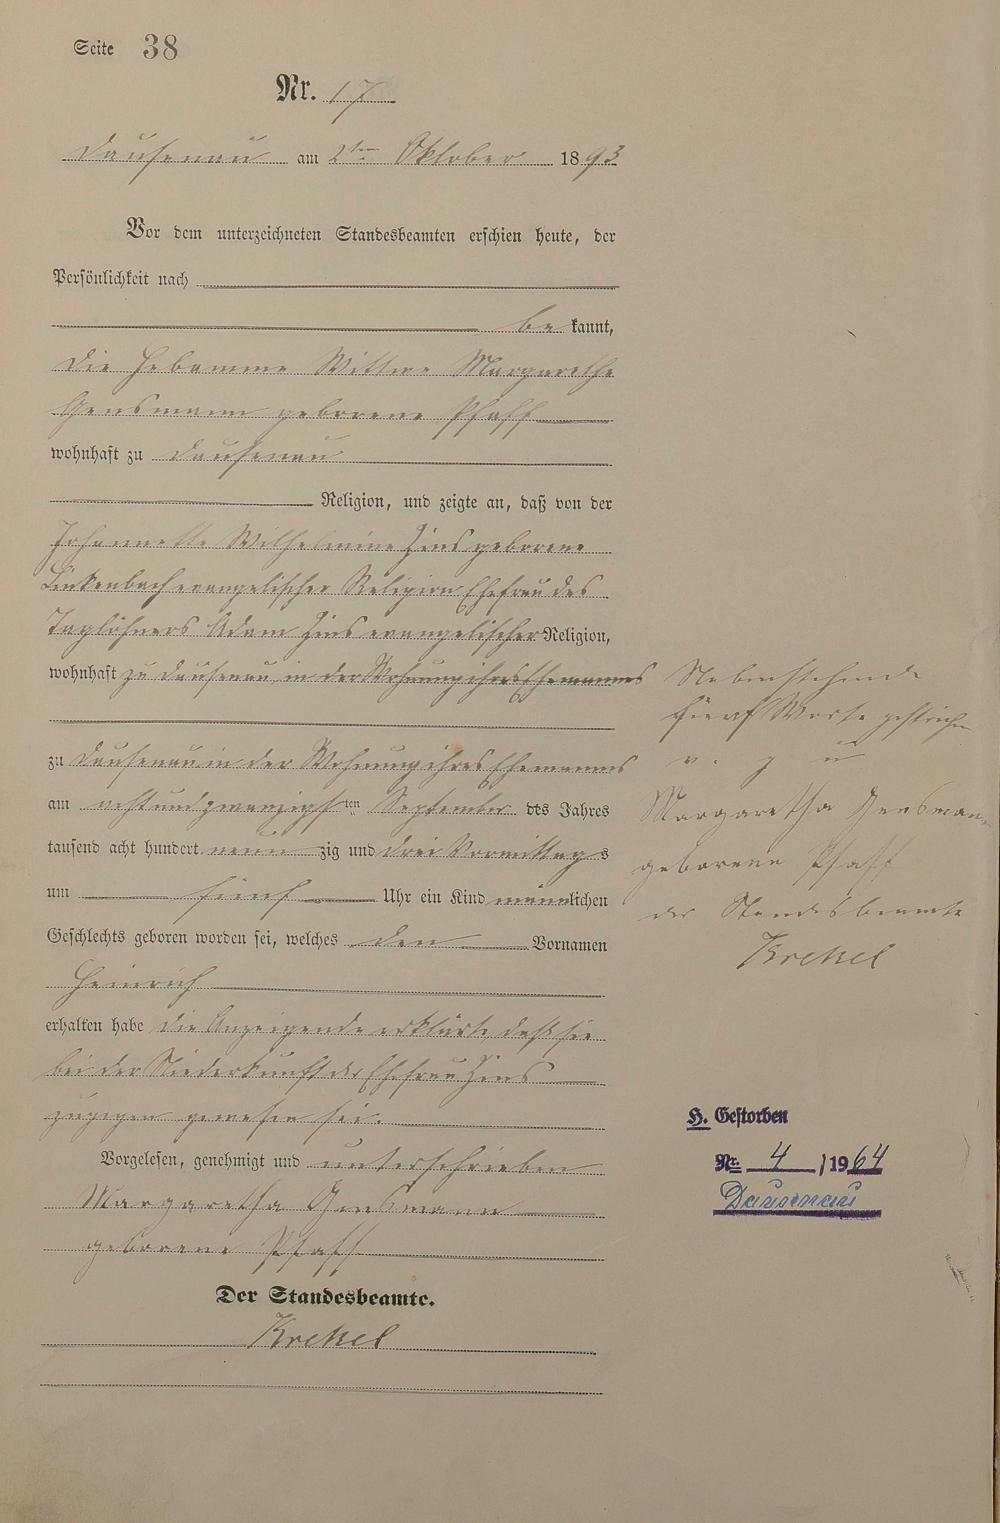 Seite 38
Nr. 17
Dausenau am 2ten Oktober 1893
Vor dem unterzeichneten Standesbeamten erschien heute, der
Persönlichkeit nach
be kannt,
die Hebamme Wittwe Margarethe
Gensmann geborene Pfaff
wohnhaft zu Dausenau
Religion, und zeigte an, daß von der
Johannette Wilhelmine Zins geborene
Linkenbach evangelischer Religion Ehefrau des
Taglöhners Adam Zins evangelischer Religion,
wohnhaft zu Dausenau in der Wohnung ihres Ehemannes
zu Dausenau in der Wohnung ihres Ehemannes
am achtundzwanzigsten September des Jahres
tausend acht hundert neunzig und drei Vormittags
um fünf Uhr ein Kind männlichen
Geschlechts geboren worden sei, welches den Vornamen
Heinrich
erhalten habe die Anzeigende erklärte, daß sie
bei der Niederkunft der Ehefrau Zins
zugegen gewesen sei.
Vorgelesen, genehmigt und unterschrieben
Margaretha Gensmann
geborene Pfaff
Der Standesbeamte.
Krekel
Nebenstehende
fünf Worte gestrichen
v. g u
Margaretha Gensmann
geborene Pfaff
der Standesbeamte
Krekel
H. Gestorben
Nr. 4 / 1964
Dausenau